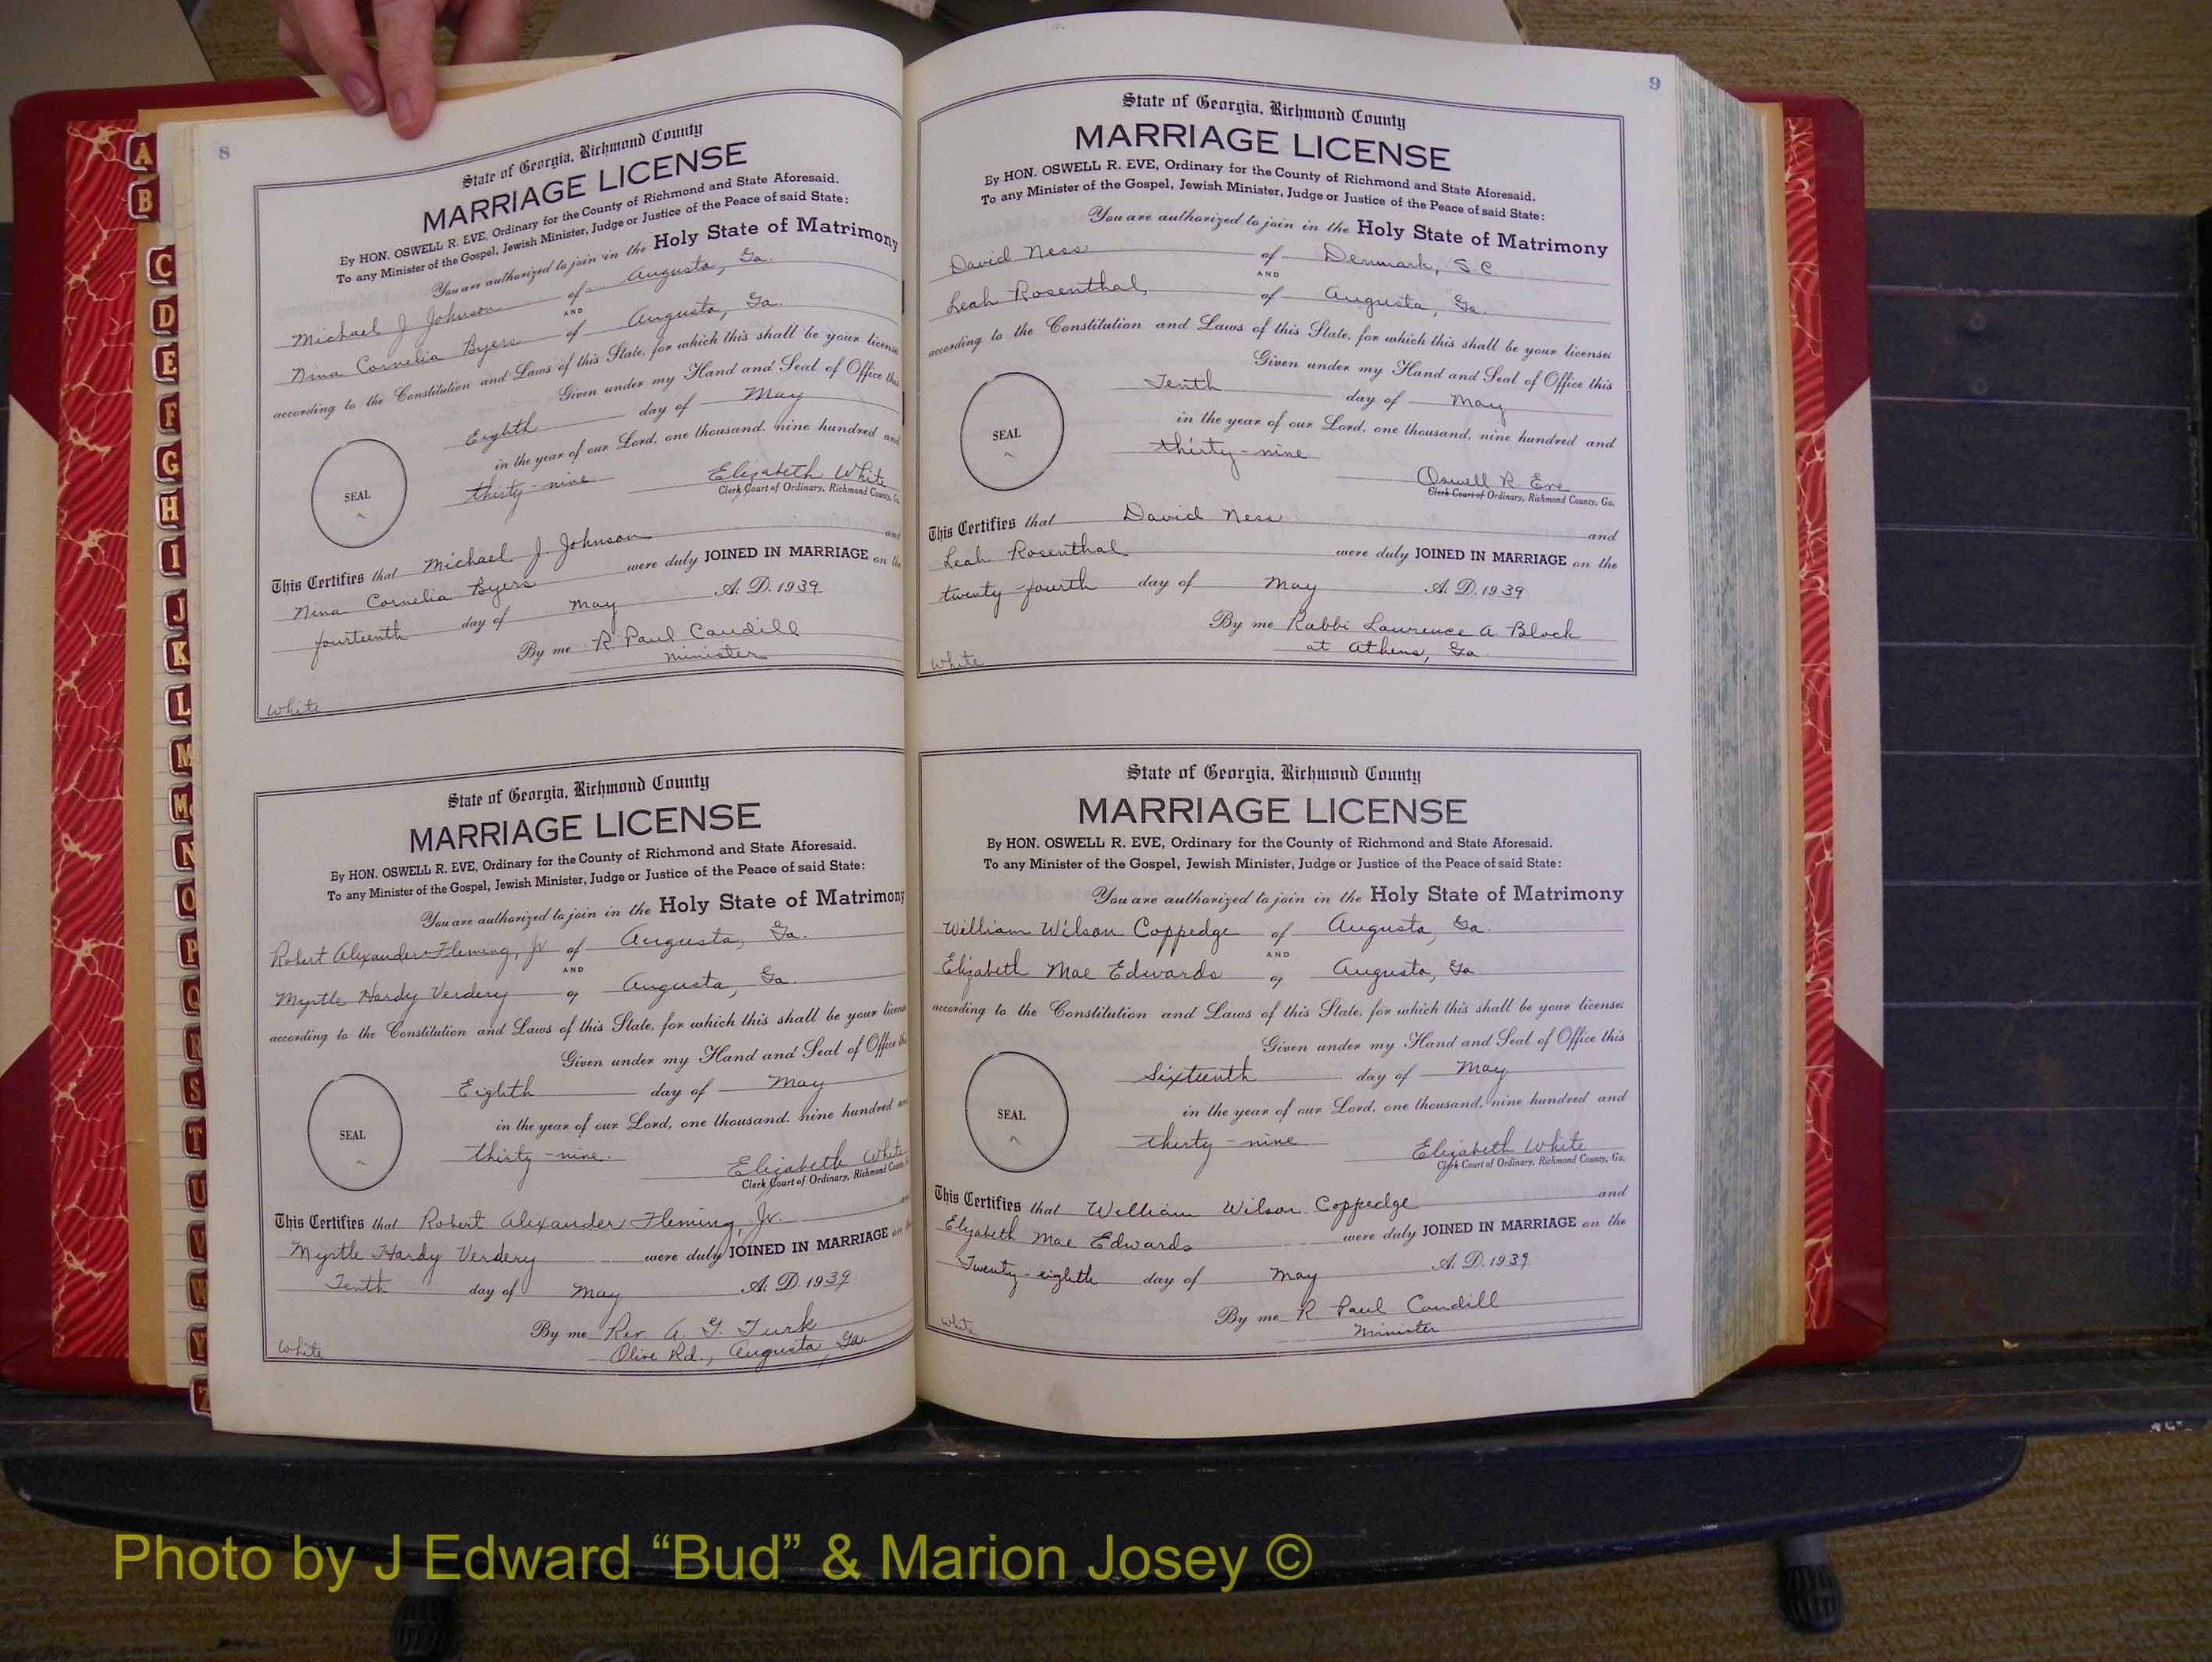 8
State of Georgia, Richmond County
MARRIAGE LICENSE
By HON. OSWELL R. EVE, Ordinary for the County of Richmond and State Aforesaid.
To any Minister of the Gospel, Jewish Minister, Judge or Justice of the Peace of said State:
You are authorized to join in the Holy State of Matrimony
Michael J Johnson of Augusta, Ga.
AND
Nina Cornelia Byers of Augusta, Ga.
according to the Constitution and Laws of this State, for which this shall be your license
Given under my Hand and Seal of Office this
Eighth day of May
in the year of our Lord, one thousand, nine hundred and
SEAL
thirty-nine
Elizabeth White
Clerk Court of Ordinary, Richmond County, Ga.
This Certifies that Michael J Johnson and
Nina Cornelia Byers were duly JOINED IN MARRIAGE on the
fourteenth day of May A. D. 1939
By me R Paul Caudill
minister
White
State of Georgia, Richmond County
MARRIAGE LICENSE
By HON. OSWELL R. EVE, Ordinary for the County of Richmond and State Aforesaid.
To any Minister of the Gospel, Jewish Minister, Judge or Justice of the Peace of said State:
You are authorized to join in the Holy State of Matrimony
Robert Alexander Fleming, Jr of Augusta, Ga.
AND
Myrtle Hardy Verdery of Augusta, Ga.
according to the Constitution and Laws of this State, for which this shall be your license
Given under my Hand and Seal of Office this
Eighth day of May
in the year of our Lord, one thousand, nine hundred and
SEAL
thirty-nine.
Elizabeth White
Clerk Court of Ordinary, Richmond County
This Certifies that Robert Alexander Fleming, Jr. and
Myrtle Hardy Verdery were duly JOINED IN MARRIAGE on
Tenth day of May A. D. 1939
By me Rev. A. G. Turk
Olive Rd., Augusta, Ga.
White
9
State of Georgia, Richmond County
MARRIAGE LICENSE
By HON. OSWELL R. EVE, Ordinary for the County of Richmond and State Aforesaid.
To any Minister of the Gospel, Jewish Minister, Judge or Justice of the Peace of said State:
You are authorized to join in the Holy State of Matrimony
David Ness of Denmark, S.C.
AND
Leah Rosenthal, of Augusta, Ga.
according to the Constitution and Laws of this State, for which this shall be your license:
Given under my Hand and Seal of Office this
Tenth day of May
in the year of our Lord, one thousand, nine hundred and
SEAL
thirty-nine
Oswell R Eve
Clerk Court of Ordinary, Richmond County, Ga.
This Certifies that David Ness and
Leah Rosenthal were duly JOINED IN MARRIAGE on the
twenty-fourth day of May A. D. 1939
By me Rabbi Laurence A. Block
at Athens, Ga.
White
State of Georgia, Richmond County
MARRIAGE LICENSE
By HON. OSWELL R. EVE, Ordinary for the County of Richmond and State Aforesaid.
To any Minister of the Gospel, Jewish Minister, Judge or Justice of the Peace of said State:
You are authorized to join in the Holy State of Matrimony
William Wilson Coppedge of Augusta, Ga.
AND
Elizabeth Mae Edwards of Augusta, Ga
according to the Constitution and Laws of this State, for which this shall be your license:
Given under my Hand and Seal of Office this
Sixteenth day of May
in the year of our Lord, one thousand, nine hundred and
SEAL
thirty-nine
Elizabeth White
Clerk Court of Ordinary, Richmond County, Ga.
This Certifies that William Wilson Coppedge and
Elizabeth Mae Edwards were duly JOINED IN MARRIAGE on the
Twenty-eighth day of May A. D. 1939
By me R. Paul Caudill
Minister
White
A
B
C
D
E
F
G
H
I
J
K
L
M
Mc
N
O
P
Q
R
S
T
U
V
W
Y
Z
Photo by J Edward “Bud” & Marion Josey ©